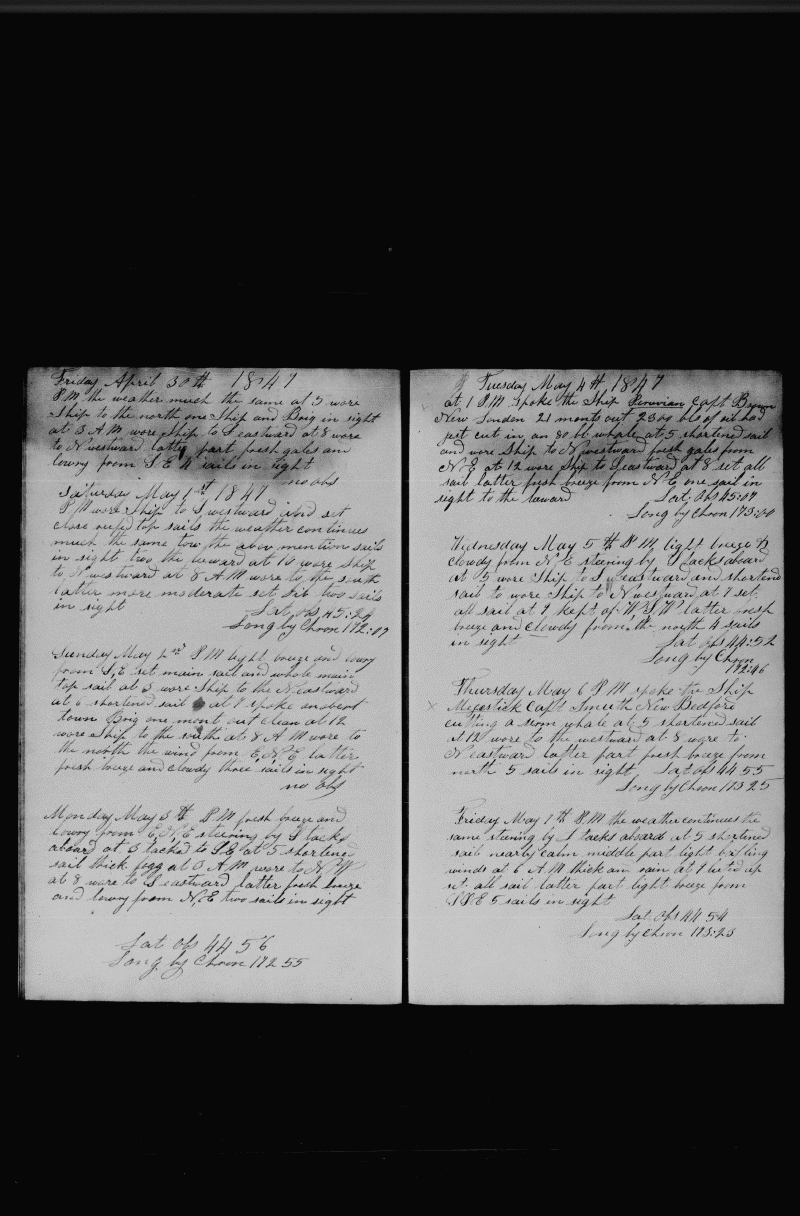 Friday April 30th 1847
P M the weather much the same at 5 wore
Ship to the north one Ship and Brig in sight
at 3 A M wore Ship to S eastward at 8 wore
to N westward latter part fresh gales an
lowry from S E 4 sails in sight
no obs
Saturday May 1st 1847
P M wore Ship to S westward and set
close reefd top sails the weather continues
much the same tow the abov mention sails
in sight two the leward at 10 wore Ship
to N westward at 8 A M wore to the south
latter more moderate set jib two sails
in sight
Lat obs 45:29
Long by Chron 172:07
Sunday May 2nd P M light breeze and lowry
from S,E set main sail and whole main
top sail at 3 wore Ship to the N eastward
at 6 shortened sail at 7 spoke an
town Brig one mont out clean at 12
wore Ship to the south at 8 A M wore to
the north the wind from E,N,E latter
fresh breeze and cloudy three sails in sight
no obs
Monday May 3th P M fresh breeze and
lowry from E,N,E steering by S tacks
aboard at 3 tacked to S,E at 5 shortened
sail thick fogg at 3 A M wore to N,W
at 8 wore to S eastward latter fresh breeze
and lowry from N,E two sails in sight
Lat obs 44 56
Long by Chron 172 55
Tuesday May 4th 1847
at 1 P M Spoke the Ship Peruvian Capt Brown
New London 21 monts out 2300 bls of oil had
just cut in an 80 bl whale at 5 shortened sail
and wore Ship to N westward fresh gales from
N,E at 12 wore Ship to S eastward at 8 set all
sail latter fresh breeze from N,E one sail in
sight to the leward
Lat obs 45:07
Long by Chron 173:00
Wednesday May 5th P M light breeze &
clowdy from N,E steering by S tacks aboard
at 5 wore Ship to S eastward and shortend
sail to wore Ship to N westward at 7 set
all sail at 9 kept of W,S,W latter fresh
breeze and clowdy from the north 4 sails
in sight
Lat obs 44:52
Long by Chron
172:46
Thursday May 6 P M spoke the Ship
Capt Smith New Bedford
cutting a whale at 5 shortened sail
at 12 wore to the westward at 8 wore to
N eastward latter part fresh breeze from
north 5 sails in sight Lat obs 44 55
Long by Chron 173 25
Friday May 7th P M the weather continues the
same steering by S tacks aboard at 5 shortened
sail nearly calm middle part light
winds at 6 A M thick an rain at 7 up
set all sail latter part light breeze from
5 sails in sight
Lat obs 44 54
Long by Chron 173:23